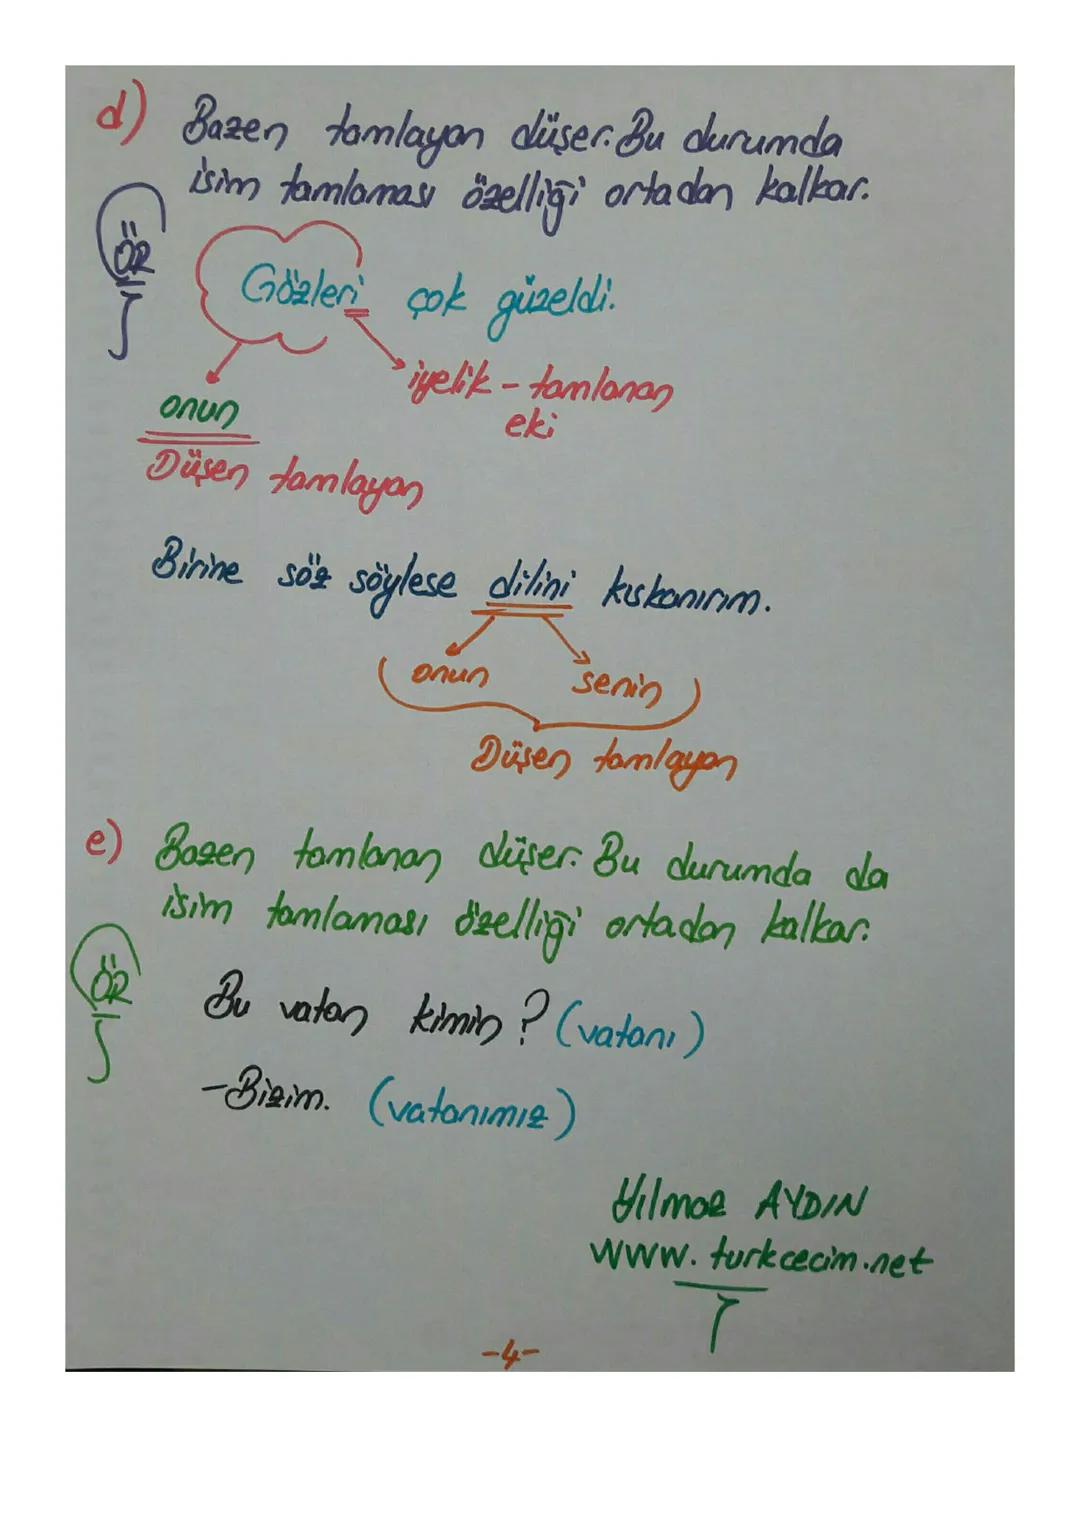 d) Bazen tamlayan düşer. Bu durumda
isim tamlaması özelliği ortadan kalkar.
ÖR
Gözleri çok güzeldi.
iyelik - tamlanan
eki
onun
Düşen tamlayan
Birine söz söylese dilini kıskanırım.
onun senin
Düşen tamlayan
e) Bazen tamlanan düşer. Bu durumda da
isim tamlaması özelliği ortadan kalkar.
ÖR
Bu vatan kimin? (vatanı)
-Bizim. (vatanımız)
Yılmaz AYDIN
www.turkcecim.net
-4-